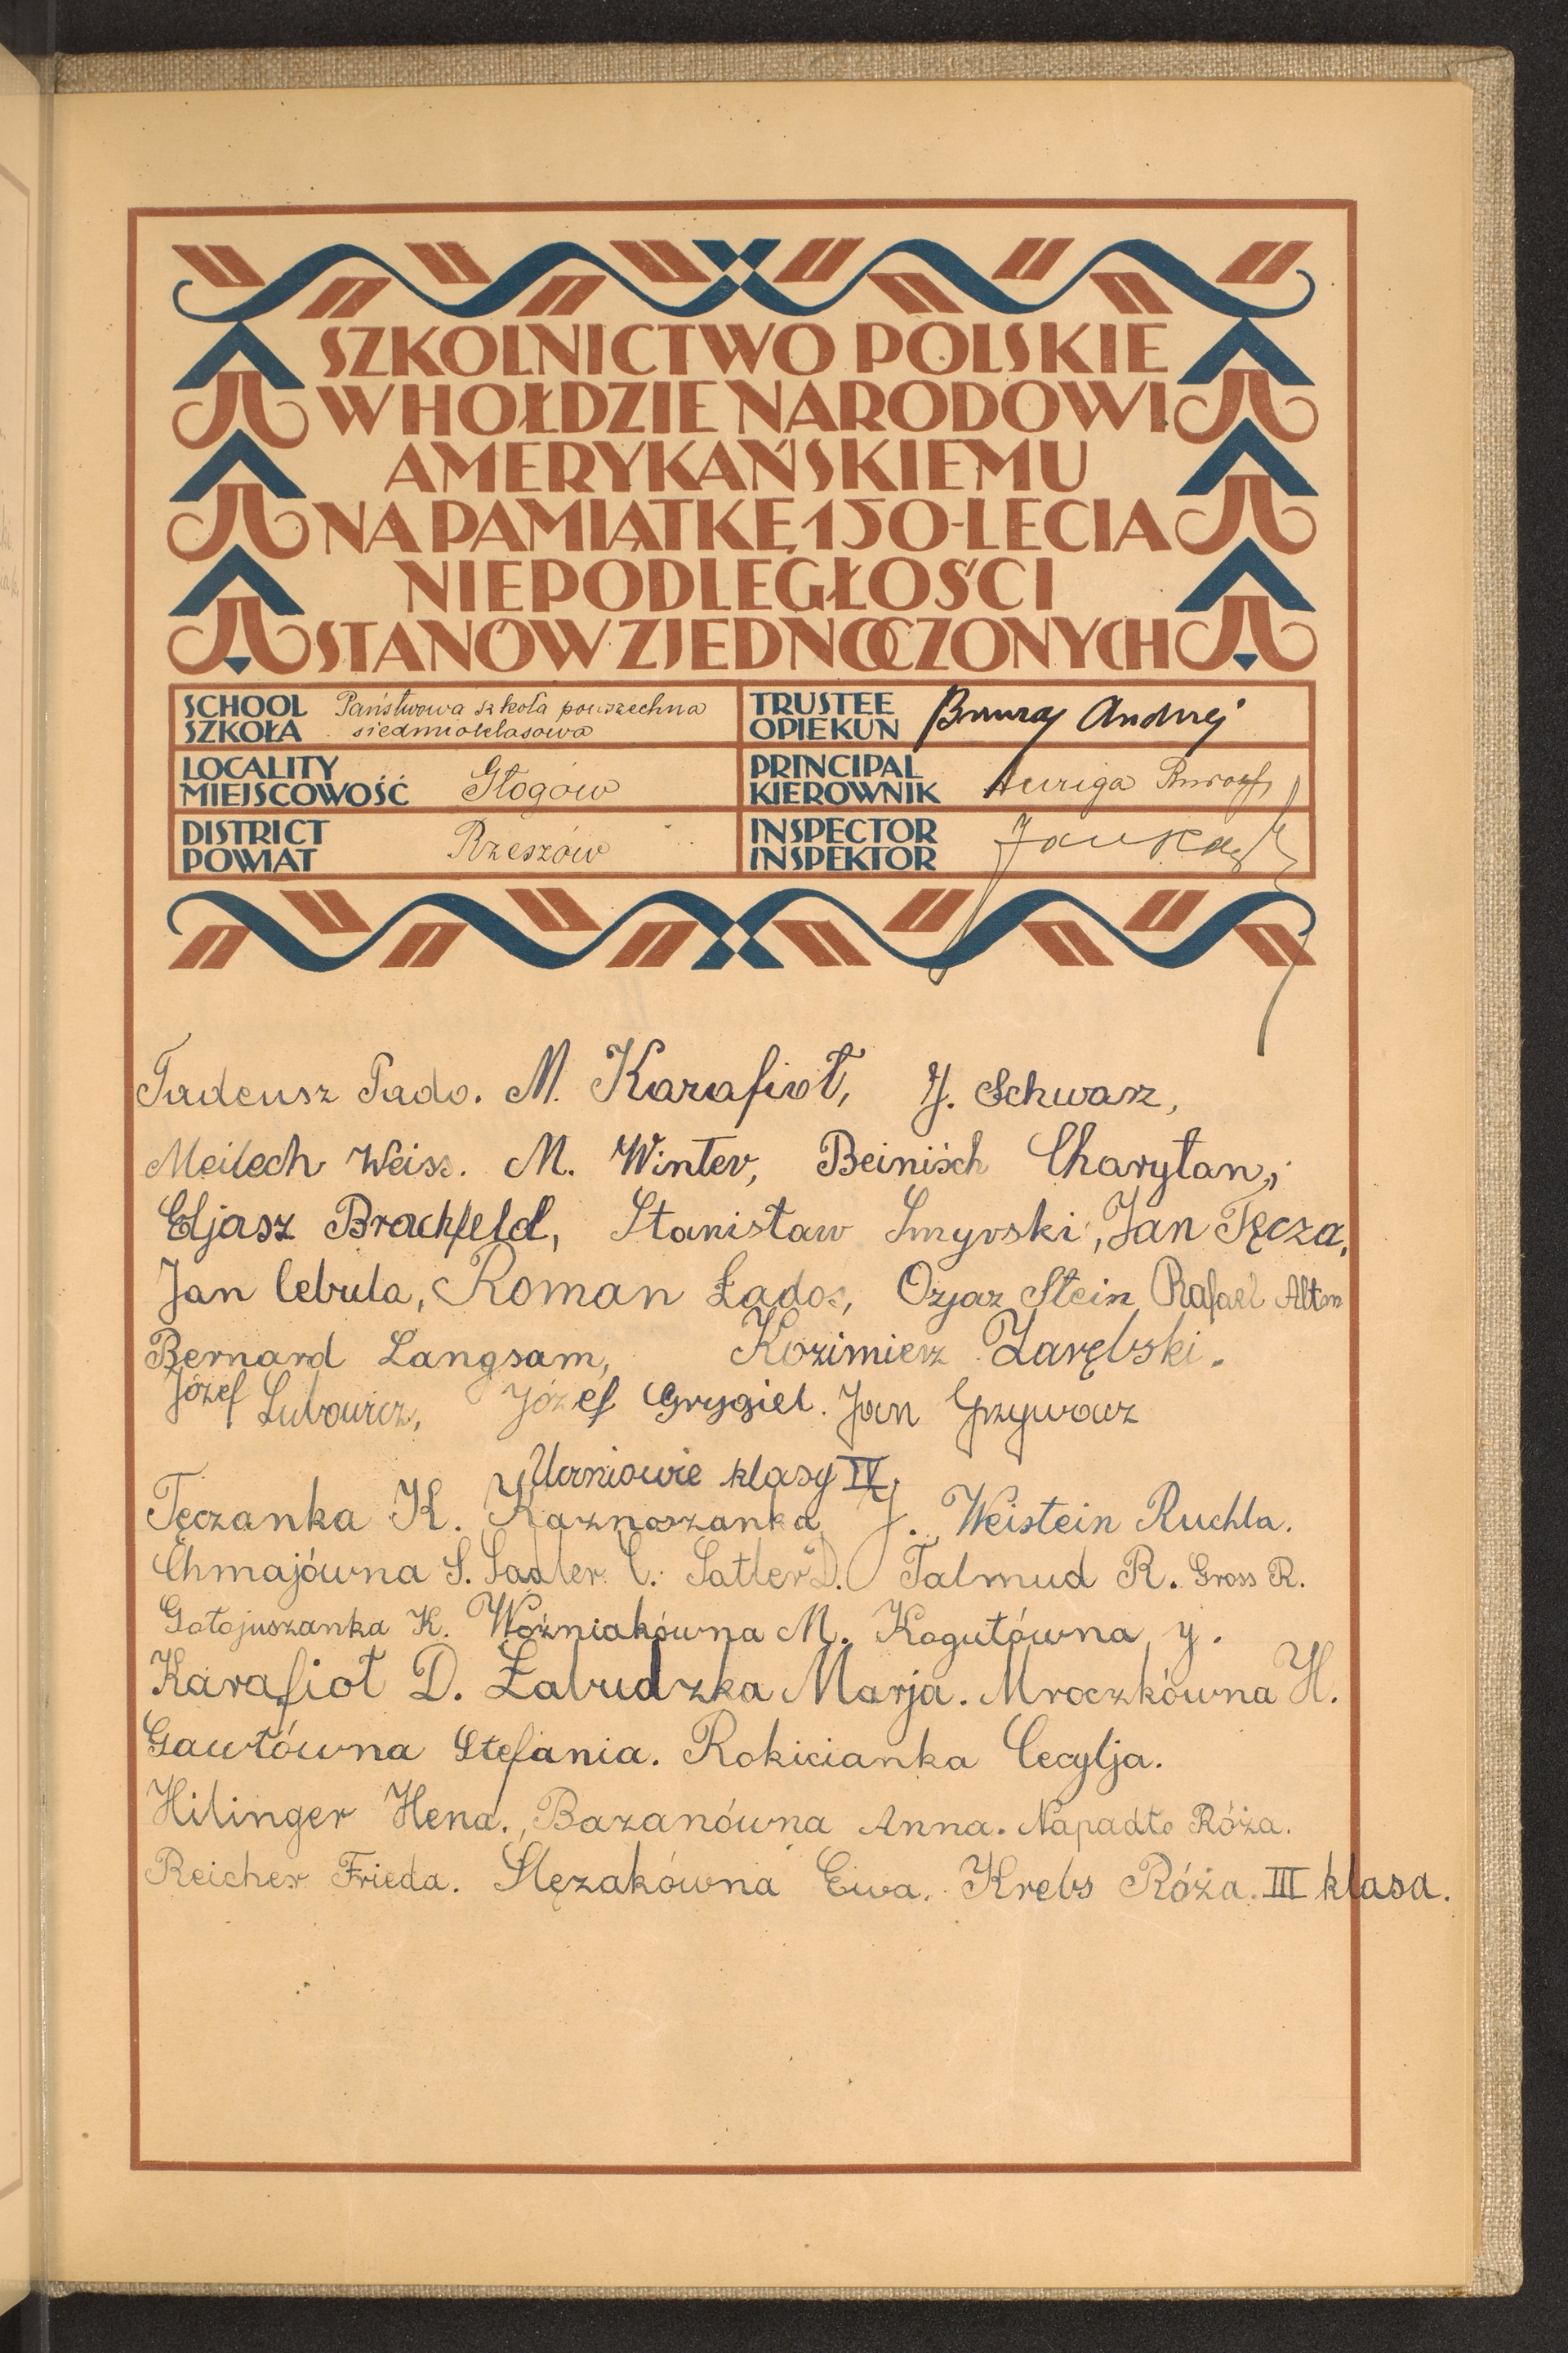 SZKOLNICTWO POLSKIE
W HOŁDZIE NARODOWI
AMERYKAŃSKIEMU
NA PAMIĄTKĘ 150-LECIA
NIEPODLEGŁOŚCI
STANÓW ZJEDNOCZONYCH
SCHOOL
SZKOŁA
Państwowa szkoła powszechna
siedmioklasowa
TRUSTEE
OPIEKUN
Andrzej
LOCALITY
MIEJSCOWOŚĆ
Głogów
PRINCIPAL
KIEROWNIK
Auriga
DISTRICT
POWIAT
Rzeszów
INSPECTOR
INSPEKTOR
Tadeusz Pado. M. Karafiot, J. Schwarz,
Meilech Weiss. M. Winter, Beinisch Charytan,
Eljasz Brachfeld, Stanisław Smyrski, Jan Tęcza,
Jan Cebula, Roman Lados, Ozjaz Stein Rafael Altm
Bernard Langsam, Kozimierz Zarębski.
Józef Lubowicz, Józef Grygiel. Jan Grzywacz
Uczniowie klasy IV.
Tęczanka K. J. Weistein Ruchla.
Chmajówna S. Sadler C. Satler D. Talmud R. Gross R.
Gołojuszanka K. Woźniakówna M. Kogutówna J.
Karafiot D. Żabudzka Marja. Mroczkówna H.
Gawłówna Stefania. Rokicianka Cecylja.
Hilinger Hena. Bazanówna Anna. Napadło Róża.
Reicher Frieda. Ślęzakówna Ewa. Krebs Róża. III klasa.